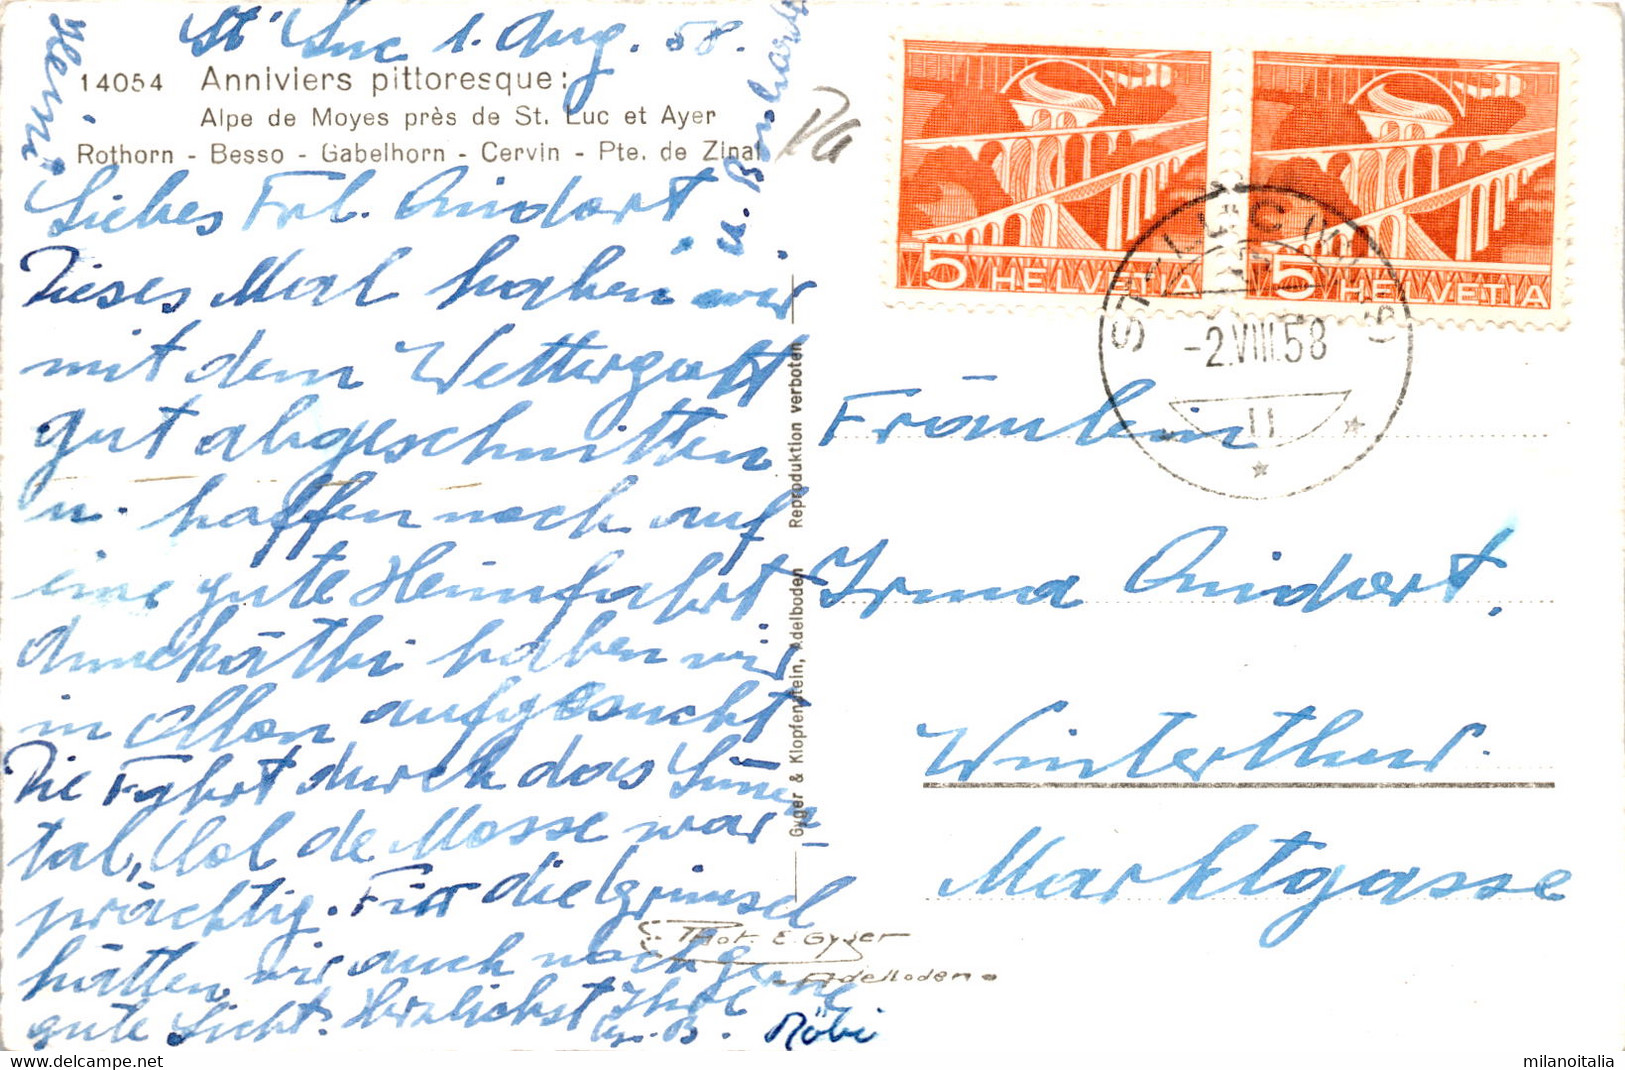 St. Luc 1. Aug. 58.
14054 Anniviers pittoresque:
Alpe de Moyes près de St. Luc et Ayer
Rothorn - Besso - Gabelhorn - Cervin - Pte. de Zinal
Liebes Frl. Aindort
Dieses Mal haben wir
mit dem Wettergott
gut abgeschnitten
u. hoffen noch auf
eine gute Heimfahrt
Annekäthi haben wir
in Ollon aufgesucht
Die Fahrt durch das Simmen-
tal, Col de Mosse war
prächtig. Für die Grimsel
hätten wir auch noch gerne
gute Sicht. Herzlichst Ihre
B. Röbi
Heini
u. Bernhard
Gyger & Klopfenstein, Adelboden Reproduktion verboten
Phot. E. Gyger
Adelboden
5 HELVETIA
5 HELVETIA
ST. LUC
-2.VIII.58
Fräulein
Irma Aindort.
Winterthur.
Marktgasse
milanoitalia